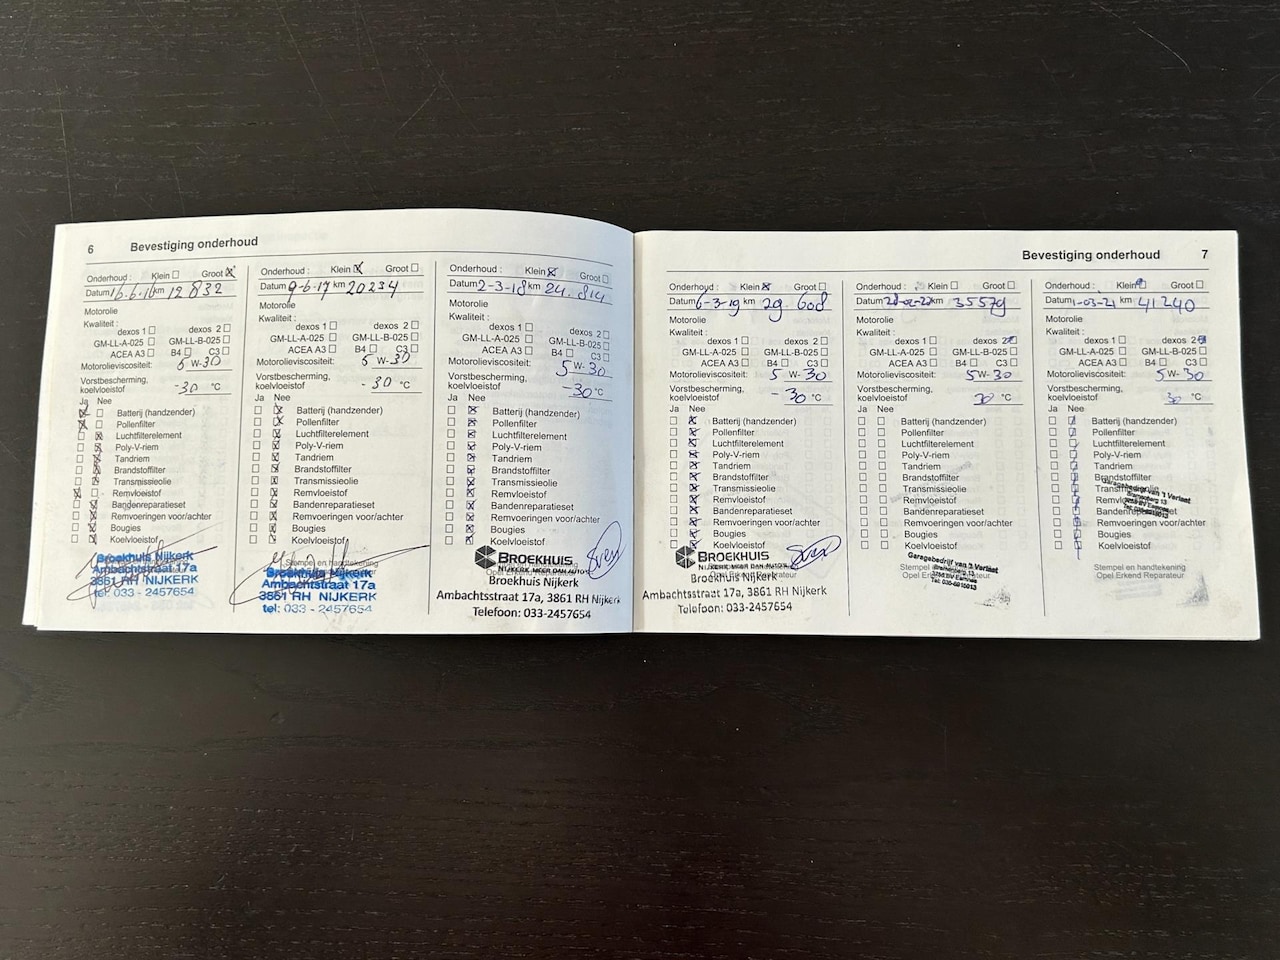 6 Bevestiging onderhoud
Onderhoud : Klein ☐ Groot ☒
Datum 16-6-16 km 12832
Motorolie
Kwaliteit :
dexos 1 ☐ dexos 2 ☐
GM-LL-A-025 ☐ GM-LL-B-025 ☐
ACEA A3 ☐ B4 ☐ C3 ☐
Motorolieviscositeit: 5 W-30
Vorstbescherming,
koelvloeistof -30 °C
Ja Nee
☒ ☐ Batterij (handzender)
☒ ☐ Pollenfilter
☐ ☒ Luchtfilterelement
☐ ☒ Poly-V-riem
☐ ☒ Tandriem
☐ ☒ Brandstoffilter
☐ ☒ Transmissieolie
☒ ☐ Remvloeistof
☐ ☒ Bandenreparatieset
☐ ☒ Remvoeringen voor/achter
☐ ☒ Bougies
☐ ☒ Koelvloeistof
Broekhuis Nijkerk
Ambachtstraat 17a
3861 RH NIJKERK
tel: 033 - 2457654
Onderhoud : Klein ☒ Groot ☐
Datum 9-6-17 km 20234
Motorolie
Kwaliteit :
dexos 1 ☐ dexos 2 ☐
GM-LL-A-025 ☐ GM-LL-B-025 ☐
ACEA A3 ☐ B4 ☐ C3 ☐
Motorolieviscositeit: 5 W-30
Vorstbescherming,
koelvloeistof -30 °C
Ja Nee
☐ ☒ Batterij (handzender)
☐ ☒ Pollenfilter
☐ ☒ Luchtfilterelement
☐ ☒ Poly-V-riem
☐ ☒ Tandriem
☐ ☒ Brandstoffilter
☐ ☒ Transmissieolie
☐ ☒ Remvloeistof
☐ ☒ Bandenreparatieset
☐ ☒ Remvoeringen voor/achter
☐ ☒ Bougies
☐ ☒ Koelvloeistof
Stempel en handtekening
Broekhuis Nijkerk
Ambachtstraat 17a
3861 RH NIJKERK
tel: 033 - 2457654
Onderhoud : Klein ☒ Groot ☐
Datum 2-3-18 km 24.814
Motorolie
Kwaliteit :
dexos 1 ☐ dexos 2 ☐
GM-LL-A-025 ☐ GM-LL-B-025 ☐
ACEA A3 ☐ B4 ☐ C3 ☐
Motorolieviscositeit: 5 W-30
Vorstbescherming,
koelvloeistof -30 °C
Ja Nee
☐ ☒ Batterij (handzender)
☐ ☒ Pollenfilter
☐ ☒ Luchtfilterelement
☐ ☒ Poly-V-riem
☐ ☒ Tandriem
☐ ☒ Brandstoffilter
☐ ☒ Transmissieolie
☐ ☒ Remvloeistof
☐ ☒ Bandenreparatieset
☐ ☒ Remvoeringen voor/achter
☐ ☒ Bougies
☐ ☒ Koelvloeistof
BROEKHUIS
NIJKERK MEER DAN AUTO'S
Broekhuis Nijkerk
Ambachtsstraat 17a, 3861 RH Nijkerk
Telefoon: 033-2457654
Bevestiging onderhoud 7
Onderhoud : Klein ☒ Groot ☐
Datum 6-3-19 km 29.608
Motorolie
Kwaliteit :
dexos 1 ☐ dexos 2 ☐
GM-LL-A-025 ☐ GM-LL-B-025 ☐
ACEA A3 ☐ B4 ☐ C3 ☐
Motorolieviscositeit: 5 W-30
Vorstbescherming,
koelvloeistof -30 °C
Ja Nee
☐ ☒ Batterij (handzender)
☐ ☒ Pollenfilter
☐ ☒ Luchtfilterelement
☐ ☒ Poly-V-riem
☐ ☒ Tandriem
☐ ☒ Brandstoffilter
☐ ☒ Transmissieolie
☐ ☒ Remvloeistof
☐ ☒ Bandenreparatieset
☐ ☒ Remvoeringen voor/achter
☐ ☒ Bougies
☐ ☒ Koelvloeistof
BROEKHUIS
NIJKERK MEER DAN AUTO'S
Broekhuis Nijkerk
Ambachtsstraat 17a, 3861 RH Nijkerk
Telefoon: 033-2457654
Onderhoud : Klein ☐ Groot ☐
Datum km 35579
Motorolie
Kwaliteit :
dexos 1 ☐ dexos 2 ☒
GM-LL-A-025 ☐ GM-LL-B-025 ☐
ACEA A3 ☐ B4 ☐ C3 ☐
Motorolieviscositeit: 5W-30
Vorstbescherming,
koelvloeistof 30 °C
Ja Nee
☐ ☐ Batterij (handzender)
☐ ☐ Pollenfilter
☐ ☐ Luchtfilterelement
☐ ☐ Poly-V-riem
☐ ☐ Tandriem
☐ ☐ Brandstoffilter
☐ ☐ Transmissieolie
☐ ☐ Remvloeistof
☐ ☐ Bandenreparatieset
☐ ☐ Remvoeringen voor/achter
☐ ☐ Bougies
☐ ☐ Koelvloeistof
Stempel
Opel Erkend Reparateur
Garagebedrijf van 't Verlaat
Onderhoud : Klein ☒ Groot ☐
Datum 1-03-21 km 41240
Motorolie
Kwaliteit :
dexos 1 ☐ dexos 2 ☒
GM-LL-A-025 ☐ GM-LL-B-025 ☐
ACEA A3 ☐ B4 ☐ C3 ☐
Motorolieviscositeit: 5W-30
Vorstbescherming,
koelvloeistof 30 °C
Ja Nee
☐ ☐ Batterij (handzender)
☐ ☐ Pollenfilter
☐ ☐ Luchtfilterelement
☐ ☐ Poly-V-riem
☐ ☐ Tandriem
☐ ☐ Brandstoffilter
☐ ☐ Transmissieolie
☐ ☐ Remvloeistof
☐ ☐ Bandenreparatieset
☐ ☐ Remvoeringen voor/achter
☐ ☐ Bougies
☐ ☐ Koelvloeistof
Garagebedrijf van 't Verlaat
Stempel en handtekening
Opel Erkend Reparateur